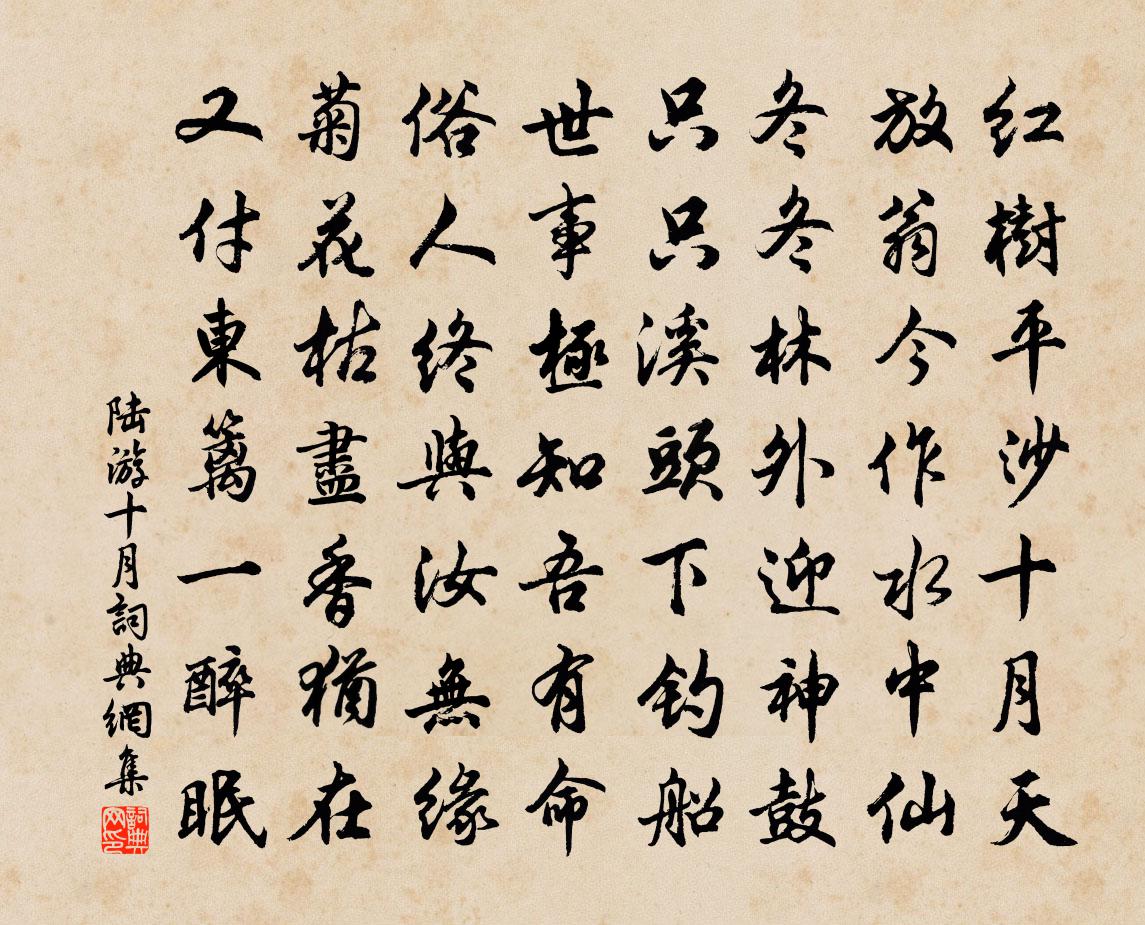 红樹平沙十月天
放翁今作水中仙
冬冬林外迎神鼓
只只溪頭下钓船
世事極知吾有命
俗人终與汝無缘
菊花枯盡香猶在
又付東籬一醉眠
陆游十月詞典網集
詞典网印